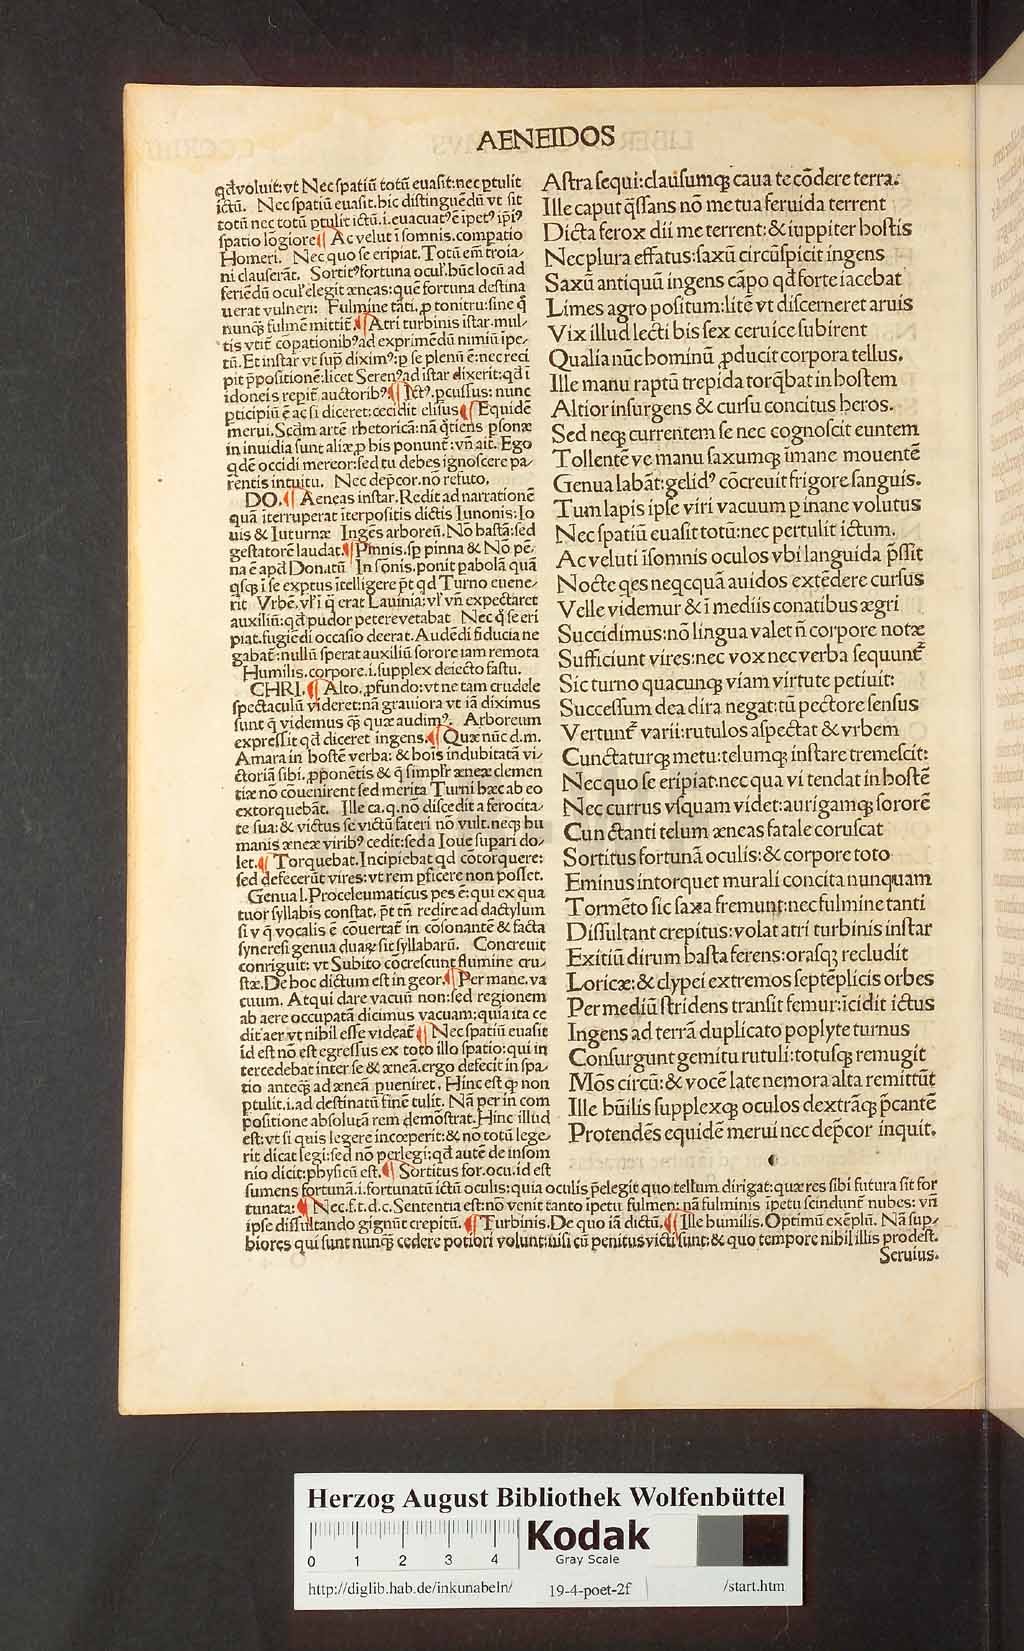 AENEIDOS
qđ voluit: vt Nec spatiũ totũ euasit: nec ꝑtulit
ictũ. Nec spatiũ euasit. hic distinguẽdũ vt sit
totũ nec totũ ꝑtulit ictũ .i. euacuatꝰ ẽ ipetꝰ ip̄iꝰ
spatio lõgiore ¶ Ac velut ĩ somnis. compatio
Homeri. Nec quo se eripiat. Totũ em̃ troia-
ni clauserãt. Sortitꝰ fortuna ocul̓. hũc locũ ad
feriẽdũ ocul̓ elegit æneas: quẽ fortuna destina
uerat vulneri: Fulmine tãti. ꝓ tonitru: sine q̃
nunqꝫ fulmẽ mittit̃. ¶ Atri turbinis ĩstar. mul-
tis vtit̃ cõpationibꝰ ad exprimẽdũ nimiũ ĩpe-
tũ. Et instar vt sup̃ diximꝰ: ꝑ se plenũ ẽ: nec reci
pit p̃positionẽ: licet Serenꝰ ad ĩstar dixerit: qđ ĩ
idoneis repit̃ auctoribꝰ ¶ Ictꝰ. ꝑcussus: nunc
ꝑticipiũ ẽ ac si diceret: cecidit elisus ¶ Equidẽ
merui. Scđm artẽ rhetoricã: nã q̃tiens ꝑsonæ
in inuidia sunt aliæ, ꝓ his ponunt̃: vñ ait. Ego
qdẽ occidi mereor: sed tu debes ignoscere pa-
rẽntis intuitu. Nec dep̃cor. nõ refuto.
DO. ¶ Aeneas instar. Redit ad narrationẽ
quã ĩterruperat ĩterpositis dictis Iunonis: Io
uis & Iuturnæ Ingẽs arboreũ. Nõ hastã: sed
gestatorẽ laudat. ¶ Pinnis. sp̃ pinna & Nõ pẽ-
na ẽ apđ Donatũ In sõnis. ponit pabolã quã
qsqꝫ ĩ se exptus ĩtelligere p̃t qđ Turno euene-
rit Vrbẽ. vl̓ ĩ q̃ erat Lauinia: vl̓ vñ expectaret
auxiliũ: qđ pudor petere vetabat Nec q̃ se eri
piat. fugiẽdi occasio deerat. Audẽdi fiducia ne
gabat̃: nullũ sperat auxiliũ sorore iam remota
Humilis. corpore .i. supplex deiecto fastu.
CHRI. ¶ Alto. ꝓfundo: vt ne tam crudele
spectaculũ videret: nã grauiora vt iã diximus
sunt q̃ videmus qꝫ quæ audimꝰ. Arboreum
expressit qđ diceret ingens. ¶ Quæ nũc d.m.
Amara in hostẽ verba: & hois indubitatã vi-
ctoriã sibi, ꝓponẽtis & q̃ simpl̓r æneæ clemen
tiæ nõ cõuenirent sed merita Turni hæc ab eo
extorquebãt. Ille ca.q. nõ discedit a ferocita-
te sua: & victus se victũ fateri nõ vult. neqꝫ hu
manis æneæ viribꝰ cedit: sed a Ioue supari do-
let. ¶ Torquebat. Incipiebat qđ cõtorquere:
sed defecerũt vires: vt rem pficere non posset.
Genua l. Proceleumaticus pes ẽ: qui ex qua
tuor syllabis constat, p̃t tñ redire ad dactylum
si v q̃ vocalis ẽ cõuertat̃ in cõsonantẽ & facta
syneresi genua duaꝝ sit syllabarũ. Concreuit
conriguit: vt Subito cõcrescunt flumine cru-
stæ. De hoc dictum est in geor. ¶ Per mane. va
cuum. Atqui dare vacuũ non: sed regionem
ab aere occupatã dicimus vacuam: quia ita ce
dit aer vt nihil esse videat̃ ¶ Nec spatiũ euasit
id est nõ est egressus ex toto illo spatio: qui in
tercedebat inter se & æneã. ergo defecit in spa-
tio anteqꝫ ad æneã pueniret. Hinc est qꝫ non
ꝑtulit, i. ad destinatũ finẽ tulit. Nã per in com
positione absolutã rem demõstrat. Hinc illud
est: vt si quis legere incœperit: & no totũ lege-
rit dicat legi: sed nõ perlegi: qđ autẽ de insom
nio dicit: physicũ est. ¶ Sortitus for. ocu. id est
sumens fortunã .i. fortunatũ ictũ oculis: quia oculis p̃elegit quo telum dirigat: quæ res sibi futura sit for
tunata: ¶ Nec.f.t.d.c. Sententia est: nõ venit tanto ipetu fulmen: nã fulminis ipetu scindunt̃ nubes: vñ
ipse dissultando gignũt crepitũ. ¶ Turbinis. De quo iã dictũ. ¶ Ille humilis. Optimũ exẽplũ. Nã sup-
biores qui sunt nunqꝫ cedere potiori volunt: nisi cũ penitus victi sunt: & quo tempore nihil illis prodest.
Seruius.
Astra sequi: clausumqꝫ caua te cõdere terra.
Ille caput q̃ssans nõ me tua feruida terrent
Dicta ferox dii me terrent: & iuppiter hostis
Nec plura effatus: saxũ circũspicit ingens
Saxũ antiquũ ingens cãpo qđ forte iacebat
Limes agro positum: litẽ vt discerneret aruis
Vix illud lecti bis sex ceruice subirent
Qualia nũc hominũ ꝓducit corpora tellus.
Ille manu raptũ trepida torq̃bat in hostem
Altior insurgens & cursu concitus heros.
Sed neqꝫ currentem se nec cognoscit euntem
Tollentẽ ve manu saxumqꝫ ĩmane mouentẽ
Genua labãt: gelidꝰ cõcreuit frigore sanguis.
Tum lapis ipse viri vacuum ꝑ inane volutus
Nec spatiũ euasit totũ: nec pertulit ictum.
Ac veluti ĩsomnis oculos vbi languida p̃ssit
Nocte qes neqcquã auidos extẽdere cursus
Velle videmur & ĩ mediis conatibus ægri
Succidimus: nõ lingua valet ñ corpore notæ
Sufficiunt vires: nec vox nec verba sequunt̃
Sic turno quacunqꝫ viam virtute petiuit:
Successum dea dira negat: tũ pectore sensus
Vertunt̃ varii: rutulos aspectat & vrbem
Cunctaturqꝫ metu: telumqꝫ instare tremescit:
Nec quo se eripiat: nec qua vi tendat in hostẽ
Nec currus vsquam videt: aurigamqꝫ sororẽ
Cunctanti telum æneas fatale coruscat
Sortitus fortunã oculis: & corpore toto
Eminus intorquet murali concita nunquam
Tormẽto sic saxa fremunt: nec fulmine tanti
Dissultant crepitus: volat atri turbinis instar
Exitiũ dirum hasta ferens: orasqꝫ recludit
Loricæ: & clypei extremos septẽplicis orbes
Per mediũ stridens transit femur: ĩcidit ictus
Ingens ad terrã duplicato poplyte turnus
Consurgunt gemitu rutuli: totusqꝫ remugit
Mõs circũ: & vocẽ late nemora alta remittũt
Ille hũilis supplexqꝫ oculos dextrãqꝫ p̃cantẽ
Protendẽs equidẽ merui nec dep̃cor inquit.
Herzog August Bibliothek Wolfenbüttel
0 1 2 3 4
Kodak
Gray Scale
http://diglib.hab.de/inkunabeln/ 19-4-poet-2f /start.htm